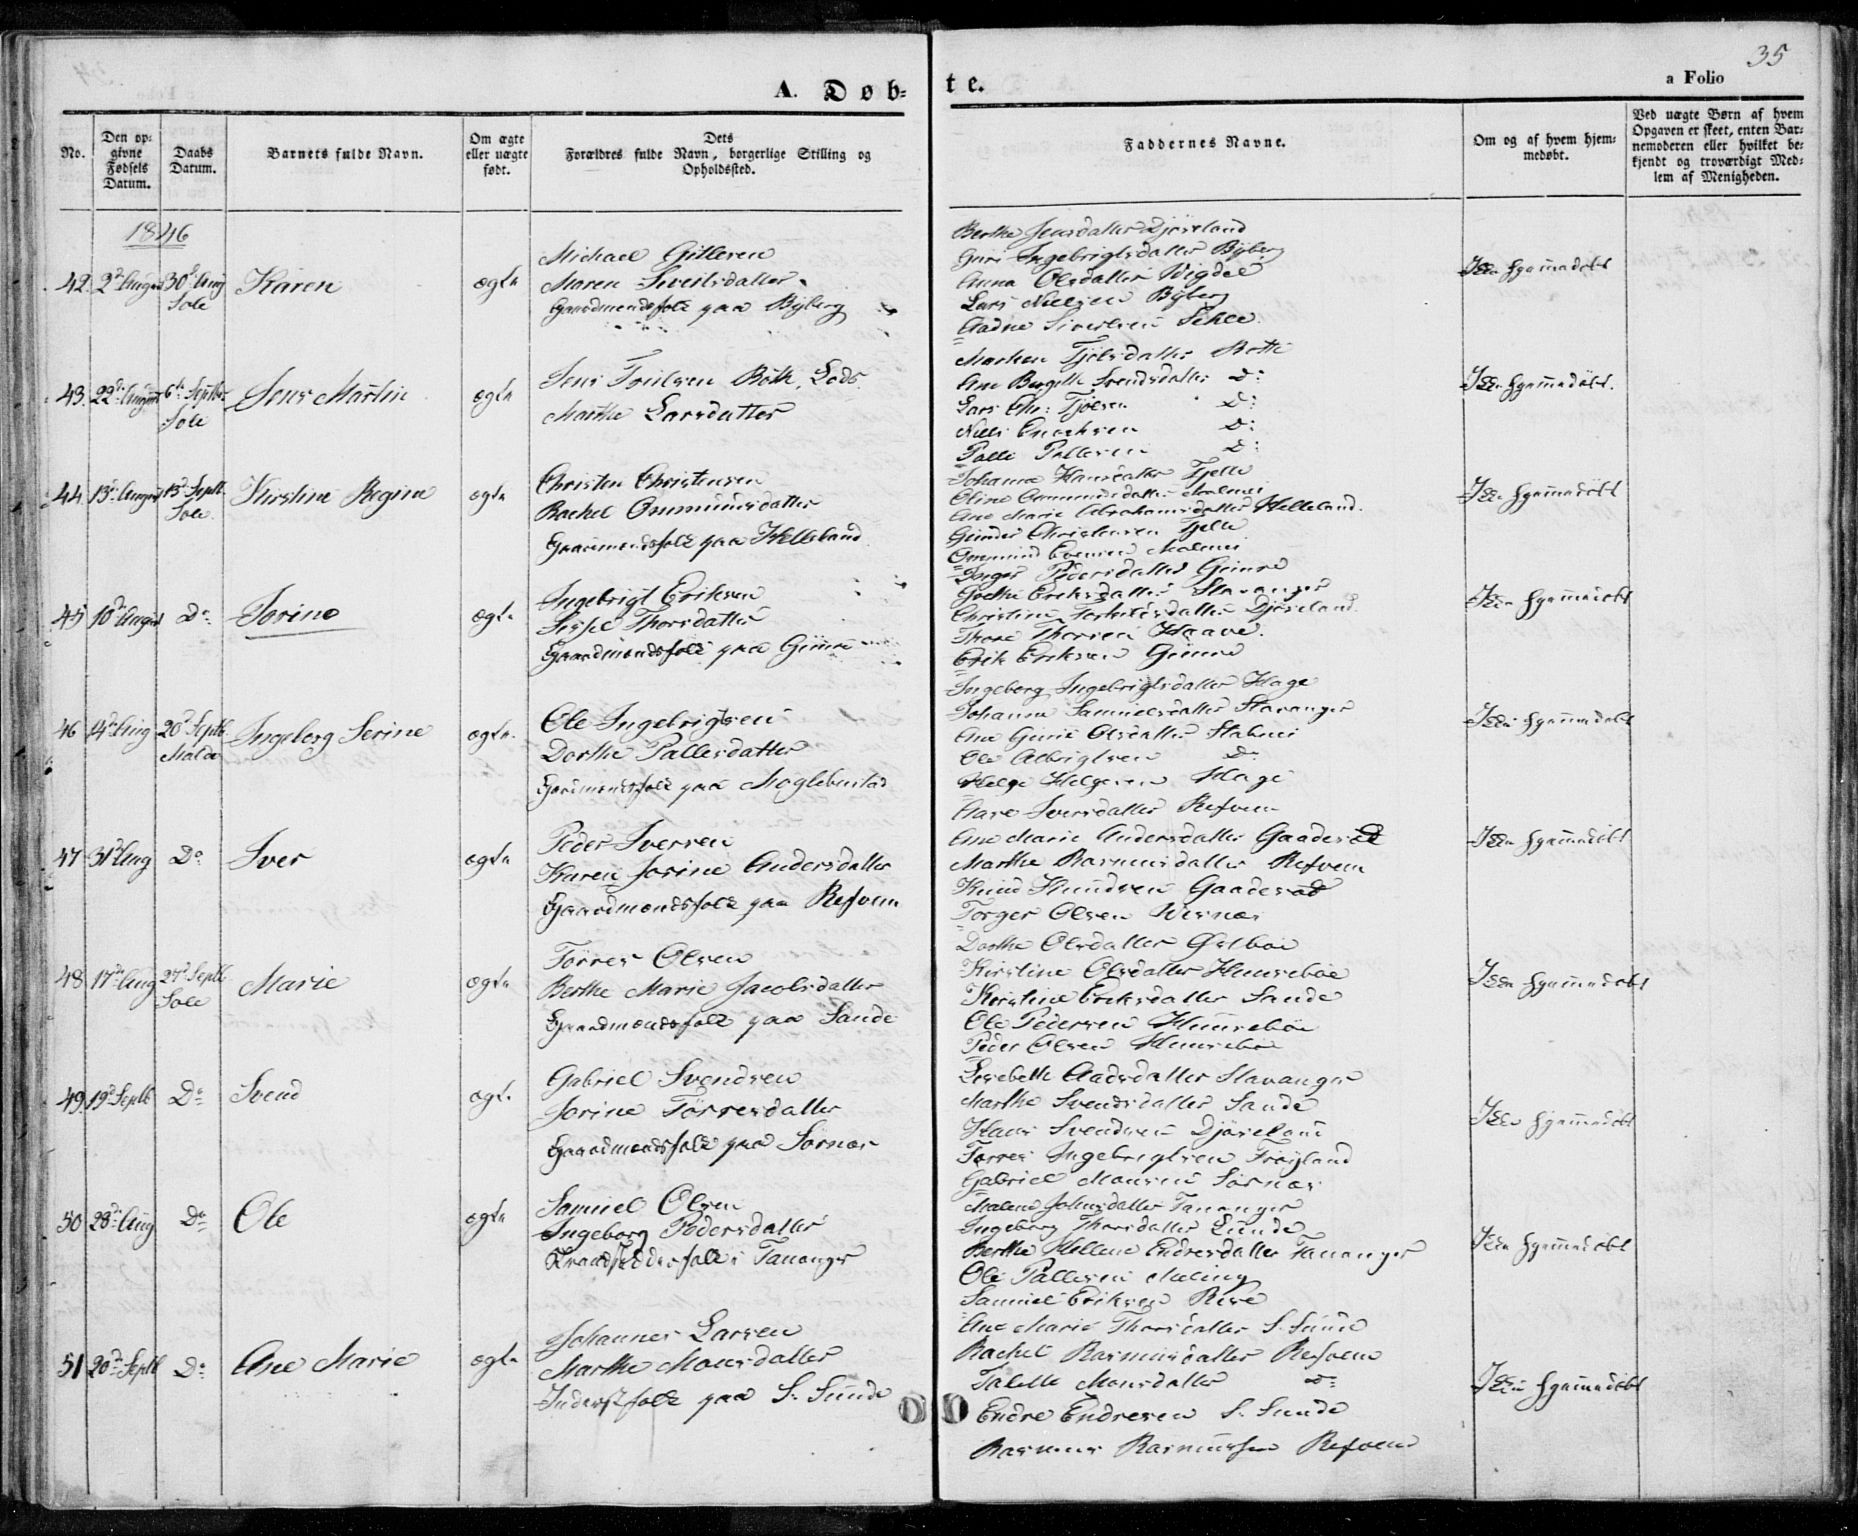 35
A. Døb=
te.
a Folio
No.
Den op=
givne
Fødsels
Datum.
Daabs
Datum.
Barnets fulde Navn.
Om ægte
eller uægte
født.
Dets
Forældres fulde Navn, borgerlige Stilling og
Opholdssted.
Faddernes Navne.
Om og af hvem hjem=
medøbt.
Ved uægte Børn af hvem
Opgaven er skeet, enten Bar=
nemoderen eller hvilket be=
kjendt og troværdigt Med=
lem af Menigheden.
1846
42.
2d August
30t Aug
Sole
Karen
ægte
Michael Gitlesen
Maren Sivertsdatter
Gaardmandsfolk paa Byberg
Berthe Jensdatter Djøseland
Guri Ingebrigtsdatter Byberg
Anna Olsdatter Vigdel
Lars Nielsen Byberg
Aadne Sivertsen
Ikke hjemmedøbt
43.
22d August
6te Septbr
Sole
Jens Martin
ægte
Jens Troilsen Roth, Lods
Marthe Larsdatter
Marken Tjølsdatter Roth
Ane Bergitte Svendsdatter Do
Lars Chr: Tjølsen Do
Niels Enochsen Do
Palle Pallesen Do
Ikke hjemmedøbt.
44
13d August
13d Septb
Sole.
Kirstine Regine
ægte
Christen Christensen
Rachel Ommundsdatter
Gaardmandsfolk paa Helleland
Johanne Hansdatter Tjelle
Eline Ommundsdatter Malmei
Ane Marie Abrahamsdatter Helleland.
Gunder Christensen Tjelle
Ommund Evensen Malmei
Ikke hjemmedøbt
45
10d August
Do
Serine
ægte
Ingebrigt Eriksen
Sissel Thorsdatter
Gaardmandsfolk paa Gimre
Inger Pedersdatter Gimre
Gjethe Eriksdatter Stavanger
Christine Torkelsdatter Djøseland
Thore Thorsen Haave.
Erik Eriksen Gimre
Ikke hjemmedøbt
46
14d Aug
20d Septb.
Malde
Ingeborg Serine
ægte
Ole Ingebrigtsen
Dorthe Pallesdatter
Gardmandsfolk paa Meglebustad
Ingeborg Ingebrigtsdatter Hage
Johanna Samuelsdatter Stavanger
Ane Gurie Olsdatter Stabnei
Ole Albrigtsen Do
Helge Helgesen Hage
Ikke hjemmedøbt
47
31d Aug
Do
Iver
ægte
Peder Iversen
Karen Jorine Andersdatter
Gaardmandsfolk paa Refvem
Aase Iversdatter Refvem
Ane Marie Andersdatter Gaadesæt
Marthe Rasmusdatter Refvem
Knud Knudsen Gaadesæt
Torger Olsen Visnæs
Ikke hjemmedøbt
48
17d Aug
27d Septb
Sole
Marie
ægte
Tørres Olsen
Berthe Marie Jacobsdatter
Gaardmandsfolk paa Sande
Dorthe Olsdatter Østbøe
Kirstine Olsdatter Hunsebøe
Kirstine Eriksdatter Sande
Ole Pedersen Hunsebøe
Peder Olsen Hunsebøe
Ikke hjemmedøbt
49
19d Septb
Do
Svend
ægte
Gabriel Svendsen
Jorine Tørresdatter
Gaardmandsfolk paa Sørnæs
Lisebeth Aadsdatter Stavanger
Marthe Svendsdatter Sande
Hans Svendsen Djøseland
Tørres Ingebrigtsen Frøyland
Gabriel Monsen Sørnæs
Ikke hjemmedøbt
50
28d Aug
Do
Ole
ægte
Samuel Olsen
Ingeborg Pedersdatter
Strandsidderfolk i Tananger
Malene Johnsdatter Tananger
Ingeborg Thorsdatter Lunde
Berthe Hellene Endresdatter Tananger
Ole Pallesen Meling
Samuel Eriksen Risé
Ikke hjemmedøbt
51
20d Septb
Do
Ane Marie
ægte
Johannes Larsen
Marthe Monsdatter
Inderstfolk paa S. Sunde
Ane Marie Thorsdatter S. Sunde
Rachel Rasmusdatter Refvem
Talette Monsdatter Do
Endre Endresen S. Sunde
Rasmus Rasmussen Refvem
Ikke hjemmedøbt